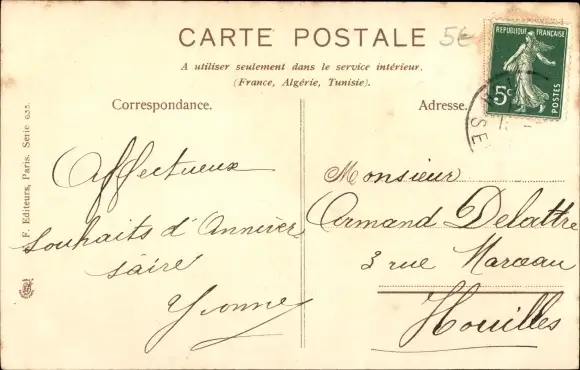 CARTE POSTALE
5€
A utiliser seulement dans le service intérieur.
(France, Algérie, Tunisie).
Correspondance.
Adresse.
RÉPUBLIQUE FRANÇAISE
5c
POSTES
SE
F. Editeurs, Paris. Série 635.
Affectueux
souhaits d'Anniver
saire
Yvonne
Monsieur
Armand Delattre
3 rue Marceau
Houilles